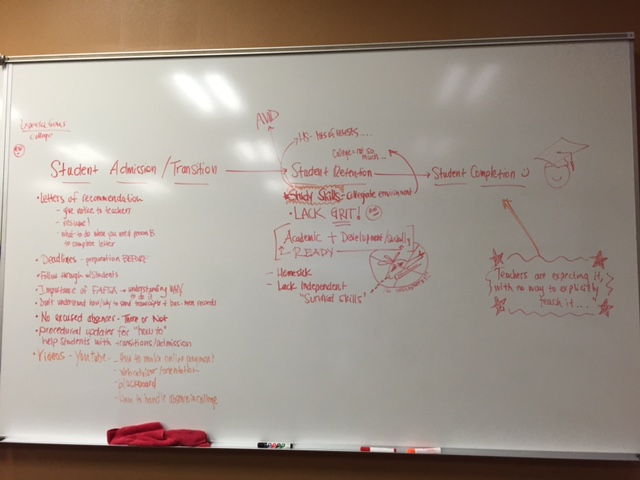 College
AVID
HS-
College = not so
much...
Student Admission / Transition
Student Retention
Student Completion
• Letters of recommendation
- give notice to teachers
- resume!
- what to do when you need person B
to complete letter
• Deadlines - preparation BEFORE
• Follow through w/students
• Importance of FAFSA → understanding WHY
to do it
• Don't understand how/why to send transcripts +
• No excused absences - There or Not
• procedural updates for "how to"
help students with transitions/admission
• Videos - YouTube - How to make online payment
- webadvisor/orientation
- blackboard
- How to handle
• Study Skills - collegiate environment
• LACK GRIT!
Academic + Development/Socially
READY
- Homesick
- Lack Independent
"Survival skills"
Teachers are expecting it,
with no way to explicitly
teach it...